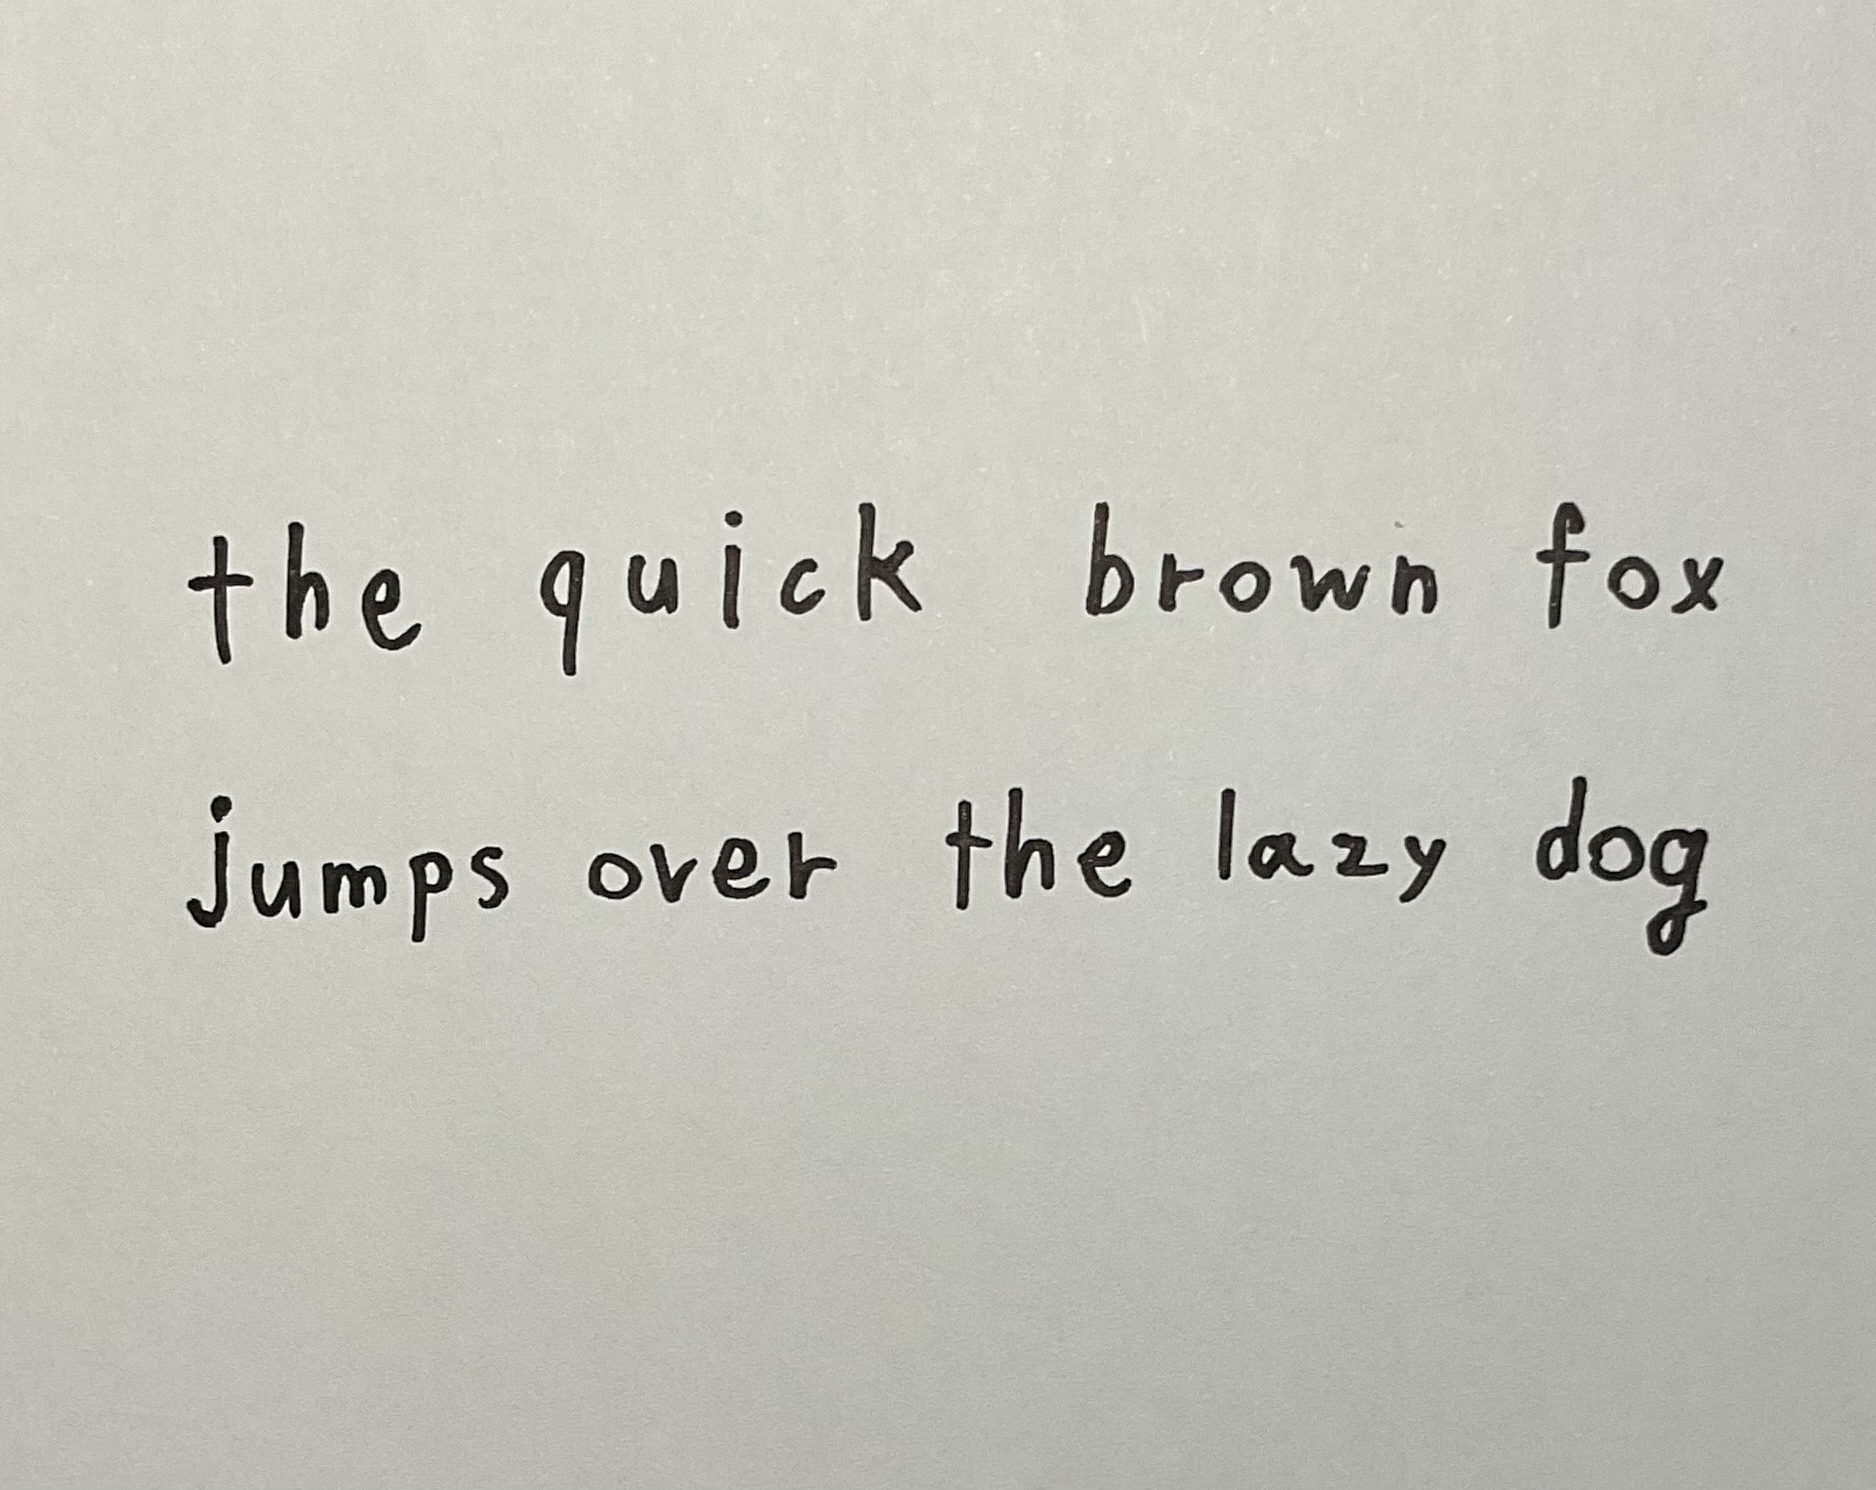 the quick brown fox
jumps over the lazy dog